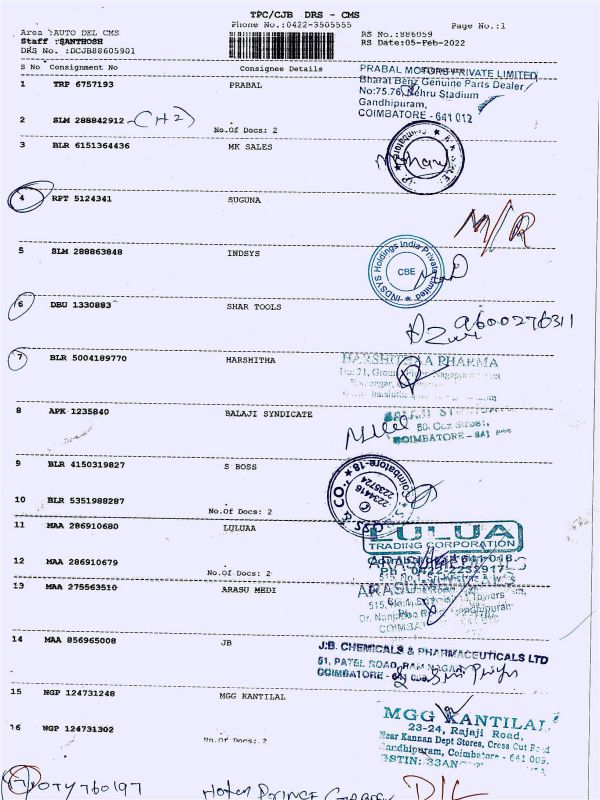 TPC/CJB DRS - CMS
Phone No.:0422-3505555
Page No.:1
Area :AUTO DEL CMS
Staff :SANTHOSH
DRS No. :DCJB88605901
RS No.:886059
RS Date:05-Feb-2022
S No Consignment No Consignee Details
1 TRP 6757193 PRABAL
PRABAL MOTORS PRIVATE LIMITED
Bharat Benz Genuine Parts Dealer
No:75.76, Nehru Stadium
Gandhipuram,
COIMBATORE - 641 012
2 SLM 288842912 (H2)
No.Of Docs: 2
3 BLR 6151364436 MK SALES
4 RPT 5124341 SUGUNA
M/R
5 SLM 288863848 INDSYS
INDSYS Holdings India Private Limited
CBE
6 DBU 1330883 SHAR TOOLS
9600276311
7 BLR 5004189770 HARSHITHA
HARSHITHAA PHARMA
8 APK 1235840 BALAJI SYNDICATE
80, Cox Street,
COIMBATORE - 641
9 BLR 4150319827 S BOSS
Coimbatore-18
2234416
2235724
10 BLR 5351988287
No.Of Docs: 2
11 MAA 286910680 LULUAA
LULUA
TRADING CORPORATION
12 MAA 286910679
No.Of Docs: 2
13 MAA 275563510 ARASU MEDI
14 MAA 856965008 JB
J.B. CHEMICALS & PHARMACEUTICALS LTD
51, PATEL ROAD, RAM NAGAR,
COIMBATORE - 641 009.
15 NGP 124731248 MGG KANTILAL
MGG KANTILAL
23-24, Rajaji Road,
Near Kannan Dept Stores, Cross Cut Road
Gandhipuram, Coimbatore - 641 009.
16 NGP 124731302
No.Of Docs: 2
17 OTY 760197 Hotel PRINCE D/L